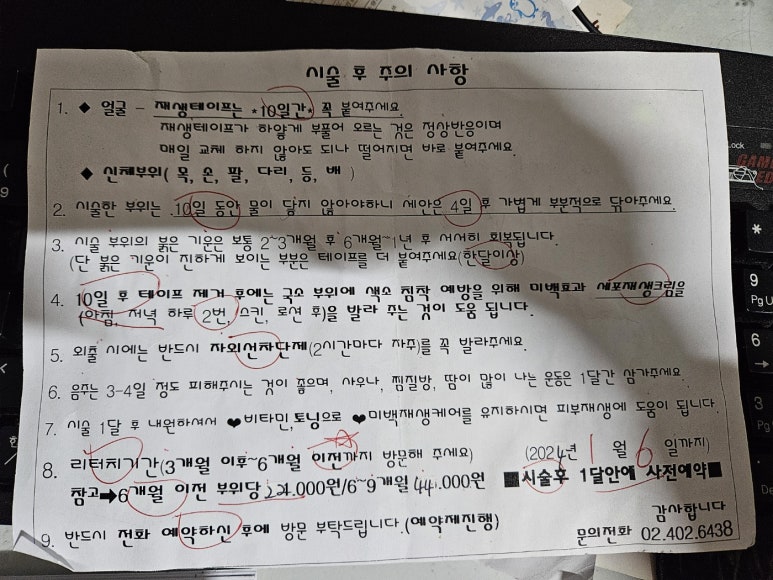 시술 후 주의 사항
1. ◆ 얼굴 - 재생테이프는 *10일간* 꼭 붙여주세요.
재생테이프가 하얗게 부풀어 오르는 것은 정상반응이며
매일 교체 하지 않아도 되나 떨어지면 바로 붙여주세요.
◆ 신체부위( 목, 손, 팔, 다리, 등, 배 )
2. 시술한 부위는 10일 동안 물이 닿지 않아야하니 세안은 4일 후 가볍게 부분적으로 닦아주세요.
3. 시술 부위의 붉은 기운은 보통 2~3개월 후 6개월~1년 후 서서히 회복됩니다.
(단 붉은 기운이 진하게 보이는 부분은 테이프를 더 붙여주세요(한달이상)
4. 10일 후 테이프 제거 후에는 국소 부위에 색소 침착 예방을 위해 미백효과 세포재생크림을
(아침, 저녁 하루 2번, 스킨, 로션 후)을 발라 주는 것이 도움 됩니다.
5. 외출 시에는 반드시 자외선차단제(2시간마다 자주)를 꼭 발라주세요.
6. 음주는 3-4일 정도 피해주시는 것이 좋으며, 사우나, 찜질방, 땀이 많이 나는 운동은 1달간 삼가주세요.
7. 시술 1달 후 내원하셔서 ♥비타민,토닝으로 ♥미백재생케어를 유지하시면 피부재생에 도움이 됩니다.
8. 리터치기간(3개월 이후~6개월 이전까지 방문해 주세요) (2024년 1월 6일까지)
참고➡6개월 이전 부위당 22,000원/6~9개월 44,000원 ■시술후 1달안에 사전예약■
9. 반드시 전화 예약하신 후에 방문 부탁드립니다.(예약제진행)
감사합니다
문의전화 02.402.6438
Lock
GAM
ED
(
9
*
9
PgU
6
→
3
Pg
<
한